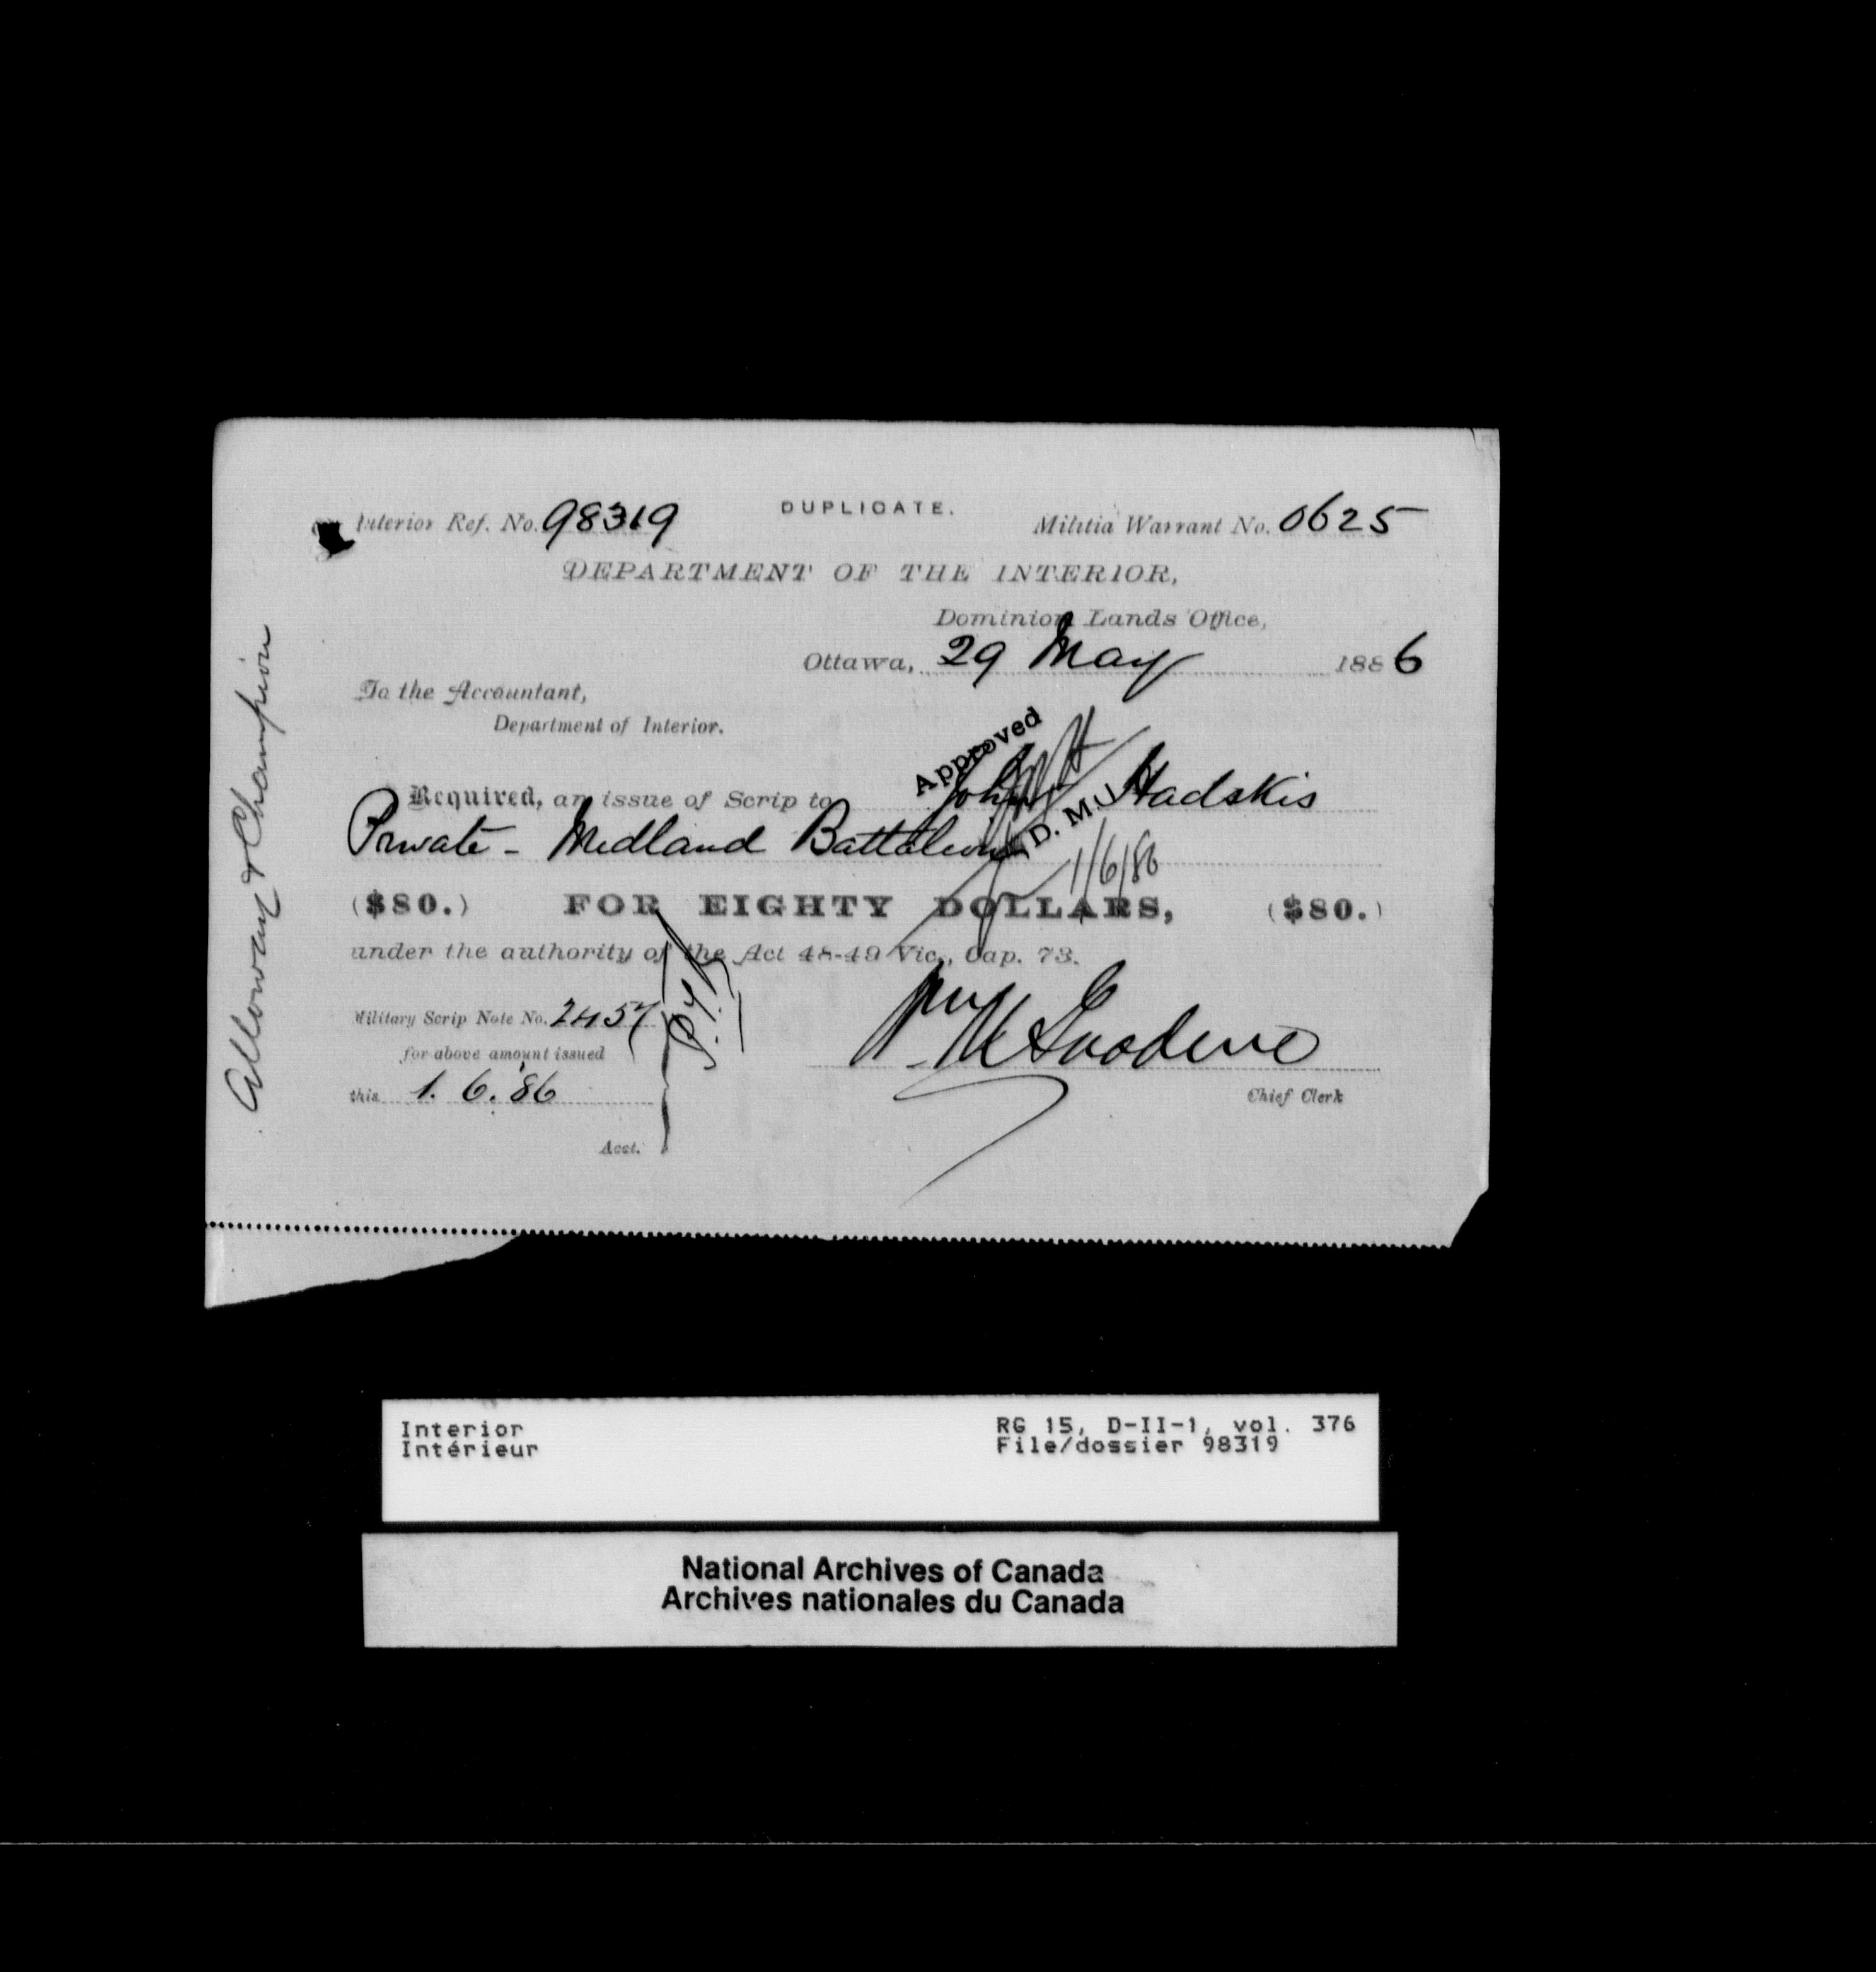 DUPLICATE.
Interior Ref. No. 98319 Militia Warrant No. 0625
DEPARTMENT OF THE INTERIOR,
Dominion Lands Office,
Ottawa, 29 May 1886
To the Accountant,
Department of Interior.
Approved
Required, an issue of Scrip to John Hadskis
D. M. I.
Private - Midland Battalion
1/6/86
($80.) FOR EIGHTY DOLLARS, ($80.)
under the authority of the Act 48-49 Vic., Cap. 73.
Military Scrip Note No. 2457
for above amount issued
this 1. 6. '86
Chief Clerk
Acct.
Alloway & Champion
Interior RG 15, D-II-1, vol. 376
Intérieur File/dossier 98319
National Archives of Canada
Archives nationales du Canada